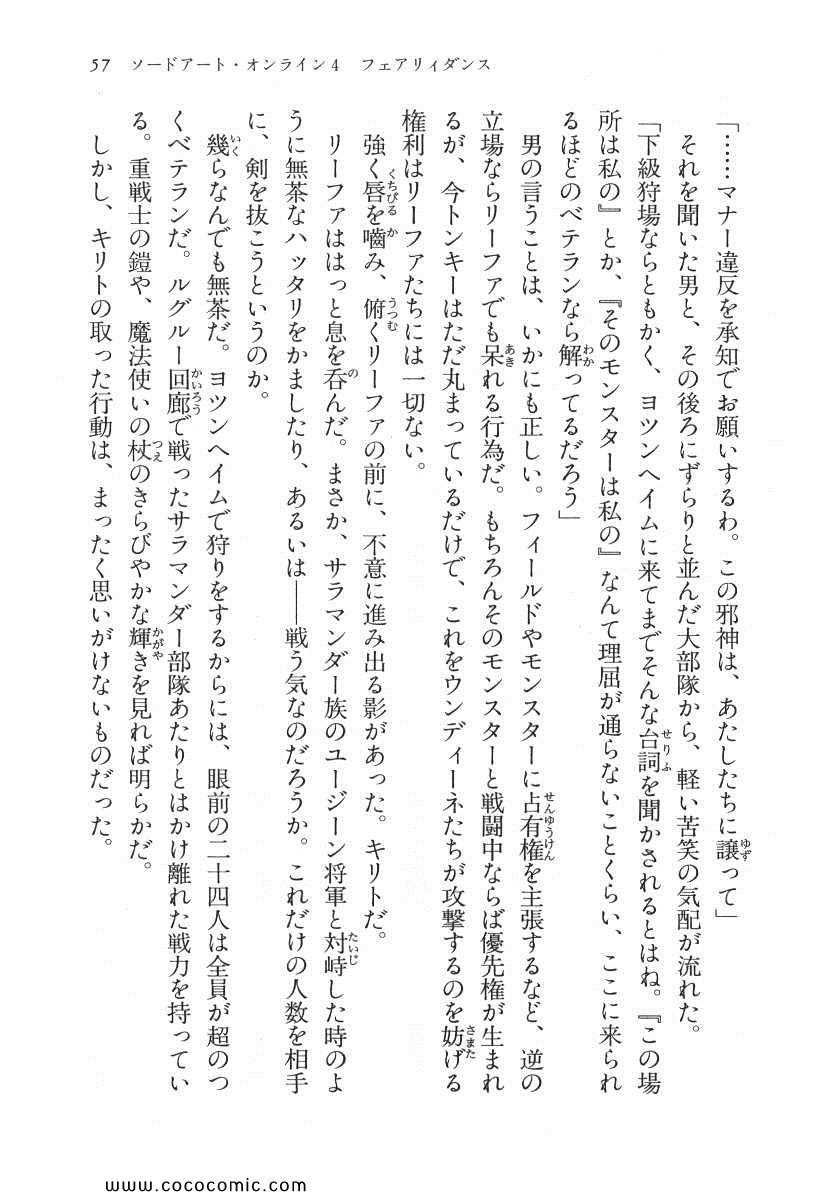 57　ソードアート・オンライン4　フェアリィダンス
「……マナー違反を承知でお願いするわ。この邪神は、あたしたちに譲って」
それを聞いた男と、その後ろにずらりと並んだ大部隊から、軽い苦笑の気配が流れた。
「下級狩場ならともかく、ヨツンヘイムに来てまでそんな台詞を聞かされるとはね。『この場
所は私の』とか、『そのモンスターは私の』なんて理屈が通らないことくらい、ここに来られ
るほどのベテランなら解ってるだろう」
男の言うことは、いかにも正しい。フィールドやモンスターに占有権を主張するなど、逆の
立場ならリーファでも呆れる行為だ。もちろんそのモンスターと戦闘中ならば優先権が生まれ
るが、今トンキーはただ丸まっているだけで、これをウンディーネたちが攻撃するのを妨げる
権利はリーファたちには一切ない。
強く唇を嚙み、俯くリーファの前に、不意に進み出る影があった。キリトだ。
リーファははっと息を呑んだ。まさか、サラマンダー族のユージーン将軍と対峙した時のよ
うに無茶なハッタリをかましたり、あるいは――戦う気なのだろうか。これだけの人数を相手
に、剣を抜こうというのか。
幾らなんでも無茶だ。ヨツンヘイムで狩りをするからには、眼前の二十四人は全員が超のつ
くベテランだ。ルグルー回廊で戦ったサラマンダー部隊あたりとはかけ離れた戦力を持ってい
る。重戦士の鎧や、魔法使いの杖のきらびやかな輝きを見れば明らかだ。
しかし、キリトの取った行動は、まったく思いがけないものだった。
www.cococomic.com